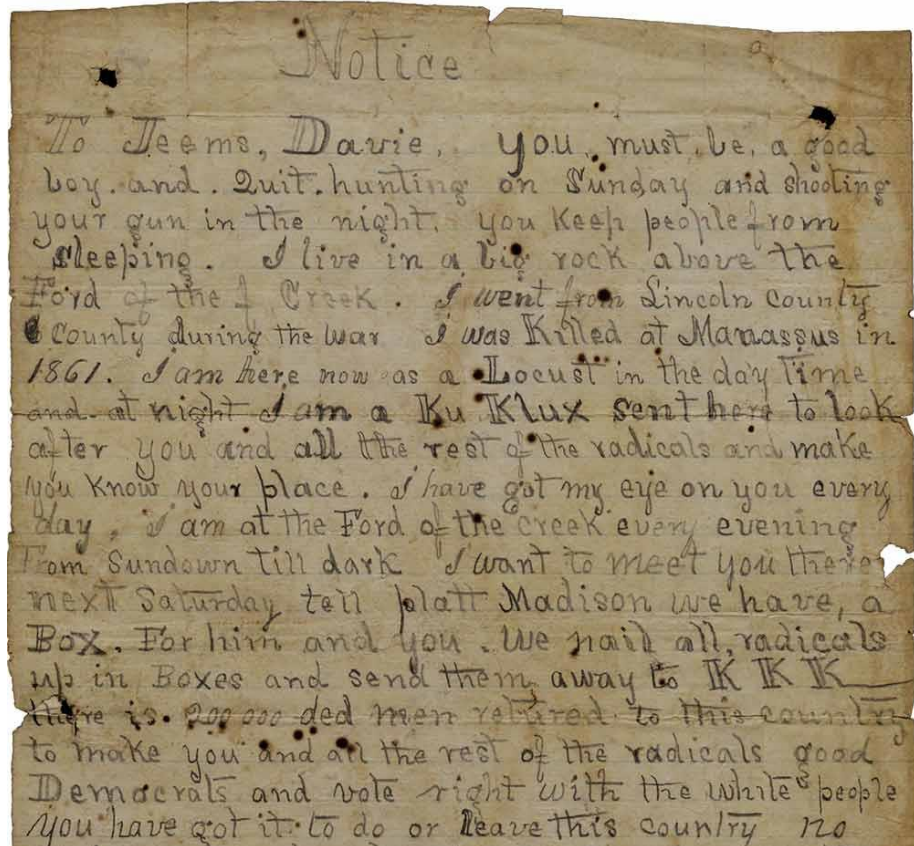 Notice
To Jeems, Davie. you. must. be. a good
boy. and. Quit. hunting on Sunday and shooting
your gun in the night. you keep people from
sleeping. I live in a big rock above the
Ford of the f Creek. I went from Lincoln county
County during the war I was Killed at Manassus in
1861. I am here now as a Locust in the day Time
and. at night I am a Ku Klux sent here to look
after you and all the rest of the radicals and make
you know your place. I have got my eye on you every
day, I am at the Ford of the creek every evening
From Sundown till dark I want to meet you there
next Saturday tell platt Madison we have, a
Box. For him and you. We nail all, radicals
up in Boxes and send them away to KKK
there is. 200 000 ded men retured to this country
to make you and all the rest of the radicals good
Democrats and vote right with the white people
you have got it to do or leave this country no